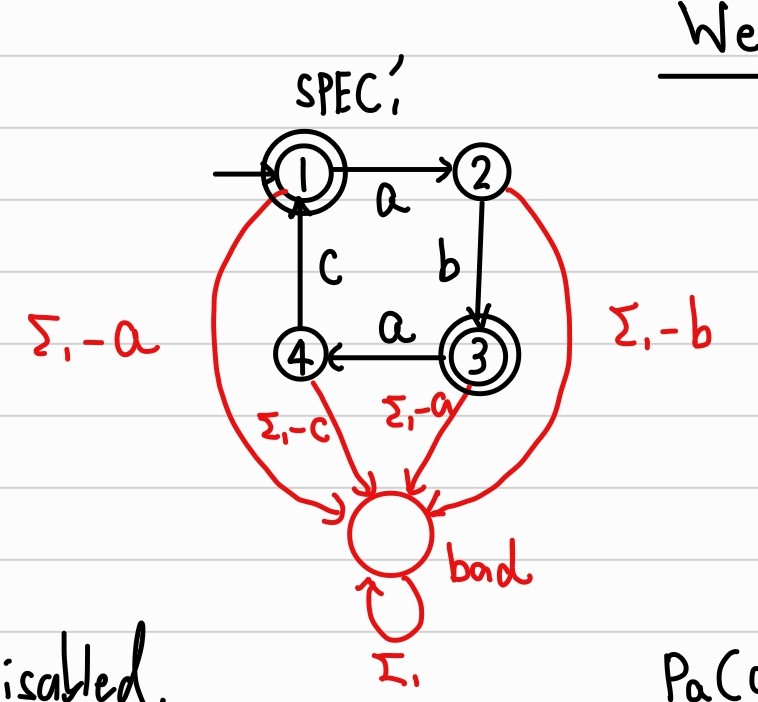 We
SPEC₁′
1
a
2
c
b
Σ₁-a
Σ₁-b
4
a
3
Σ₁-c
Σ₁-a
bad
Σ₁
isabled.
PaCo